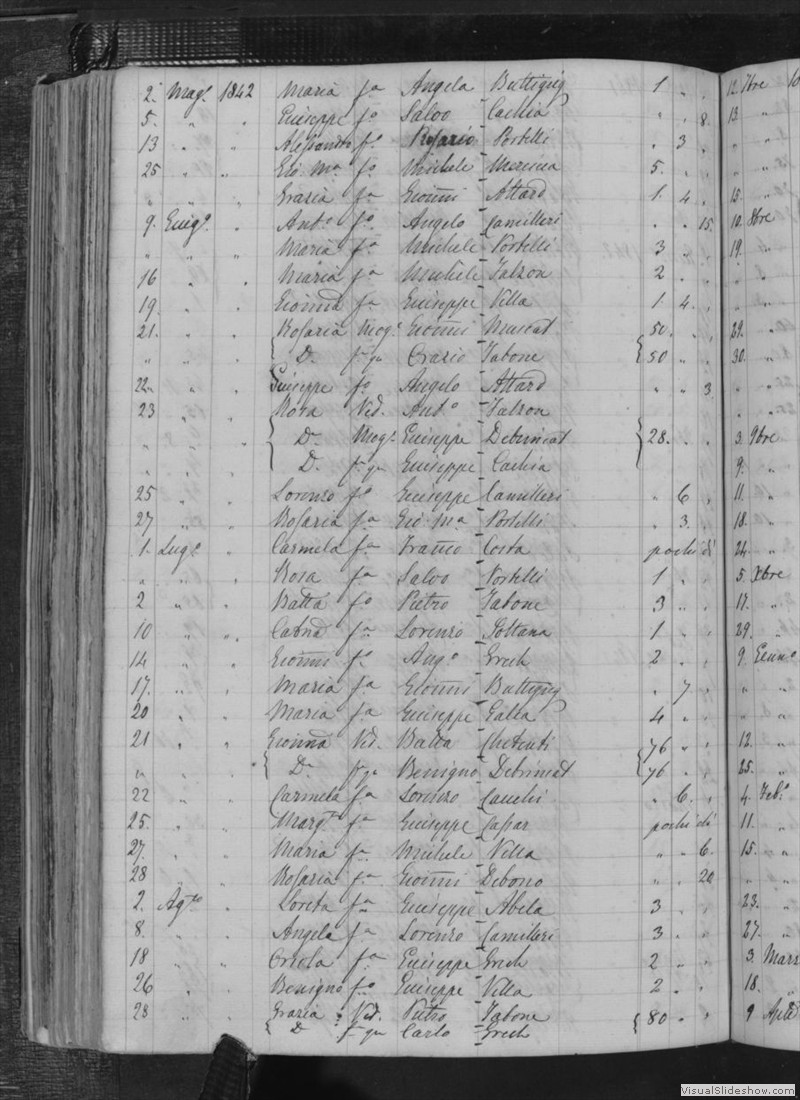 2. Magº 1842 Maria fa Angela Buttigieg 1 " " 12. 7bre
5. " " Giuseppe fo Salvo Cachia " " 8. 13. "
13 " " Alessandro fo Rosario Portelli " 3 "
25 " " Gio Ma fo Michele Mercieca 5. " "
" " " Grazia fa Gioñni Attard 1. 4. " 15. "
9. Giugº " Antº fo Angelo Camilleri " " 15. 10. 8bre
" " " Maria fa Michele Portelli 3 " " 19. "
16 " " Maria fa Michele Falzon 2 " "
19. " " Gioñna fa Giuseppe Villa 1. 4. "
21. " " Rosaria Mogе Gioñni Muscat 50. " " 29. "
" " " Da fa qm Orazio Tabone 50 " " 30. "
22 " " Giuseppe fo Angelo Attard " " 3.
23 " " Rosa Ved. Antº Falzon
" " " Da Moge Giuseppe Debrincat 28. " " 3. 9bre
" " " D. fa qm Giuseppe Cachia 9. "
25 " " Lorenzo fo Giuseppe Camilleri " 6 " 11. "
27 " " Rosaria fa Gio Ma Portelli " 3. " 18. "
1. Lugº " Carmela fa Franco Costa pochi di 24. "
" " " Rosa fa Salvo Portelli 1 " " 5. Xbre
2 " " Batta fo Pietro Tabone 3 " " 17. "
10 " " Catna fa Lorenzo Sultana 1 " " 29. "
14 " " Gioñni fo Angº Grech 2 " " 9. Gennº
17. " " Maria fa Gioñni Buttigieg " 7 " " "
20 " " Maria fa Giuseppe Galea 4 " "
21 " " Gioñna Ved. Batta 76 " " 12. "
" " " Da fa qm Benigno Debrincat 76 " " 25. "
22 " " Carmela fa Lorenzo Cauchi " 6. " 4. Febº
25. " " Margta fa Giuseppe Caspar pochi di 11. "
27. " " Maria fa Michele Villa " " 6. 15. "
28 " " Rosaria fa Gioñni Debono " " 20
2. Agto " Loreta fa Giuseppe Abela 3 " " 23. "
8. " " Angela fa Lorenzo Camilleri 3 " " 27. "
18 " " Orsola fa Giuseppe Grech 2 " " 3. Marz
26 " " Benigno fo Giuseppe Villa 2 " " 18. "
28 " " Grazia Ved. Pietro Tabone 80 " " 9 Aple
Da fa qm Carlo Grech
VisualSlideshow.com